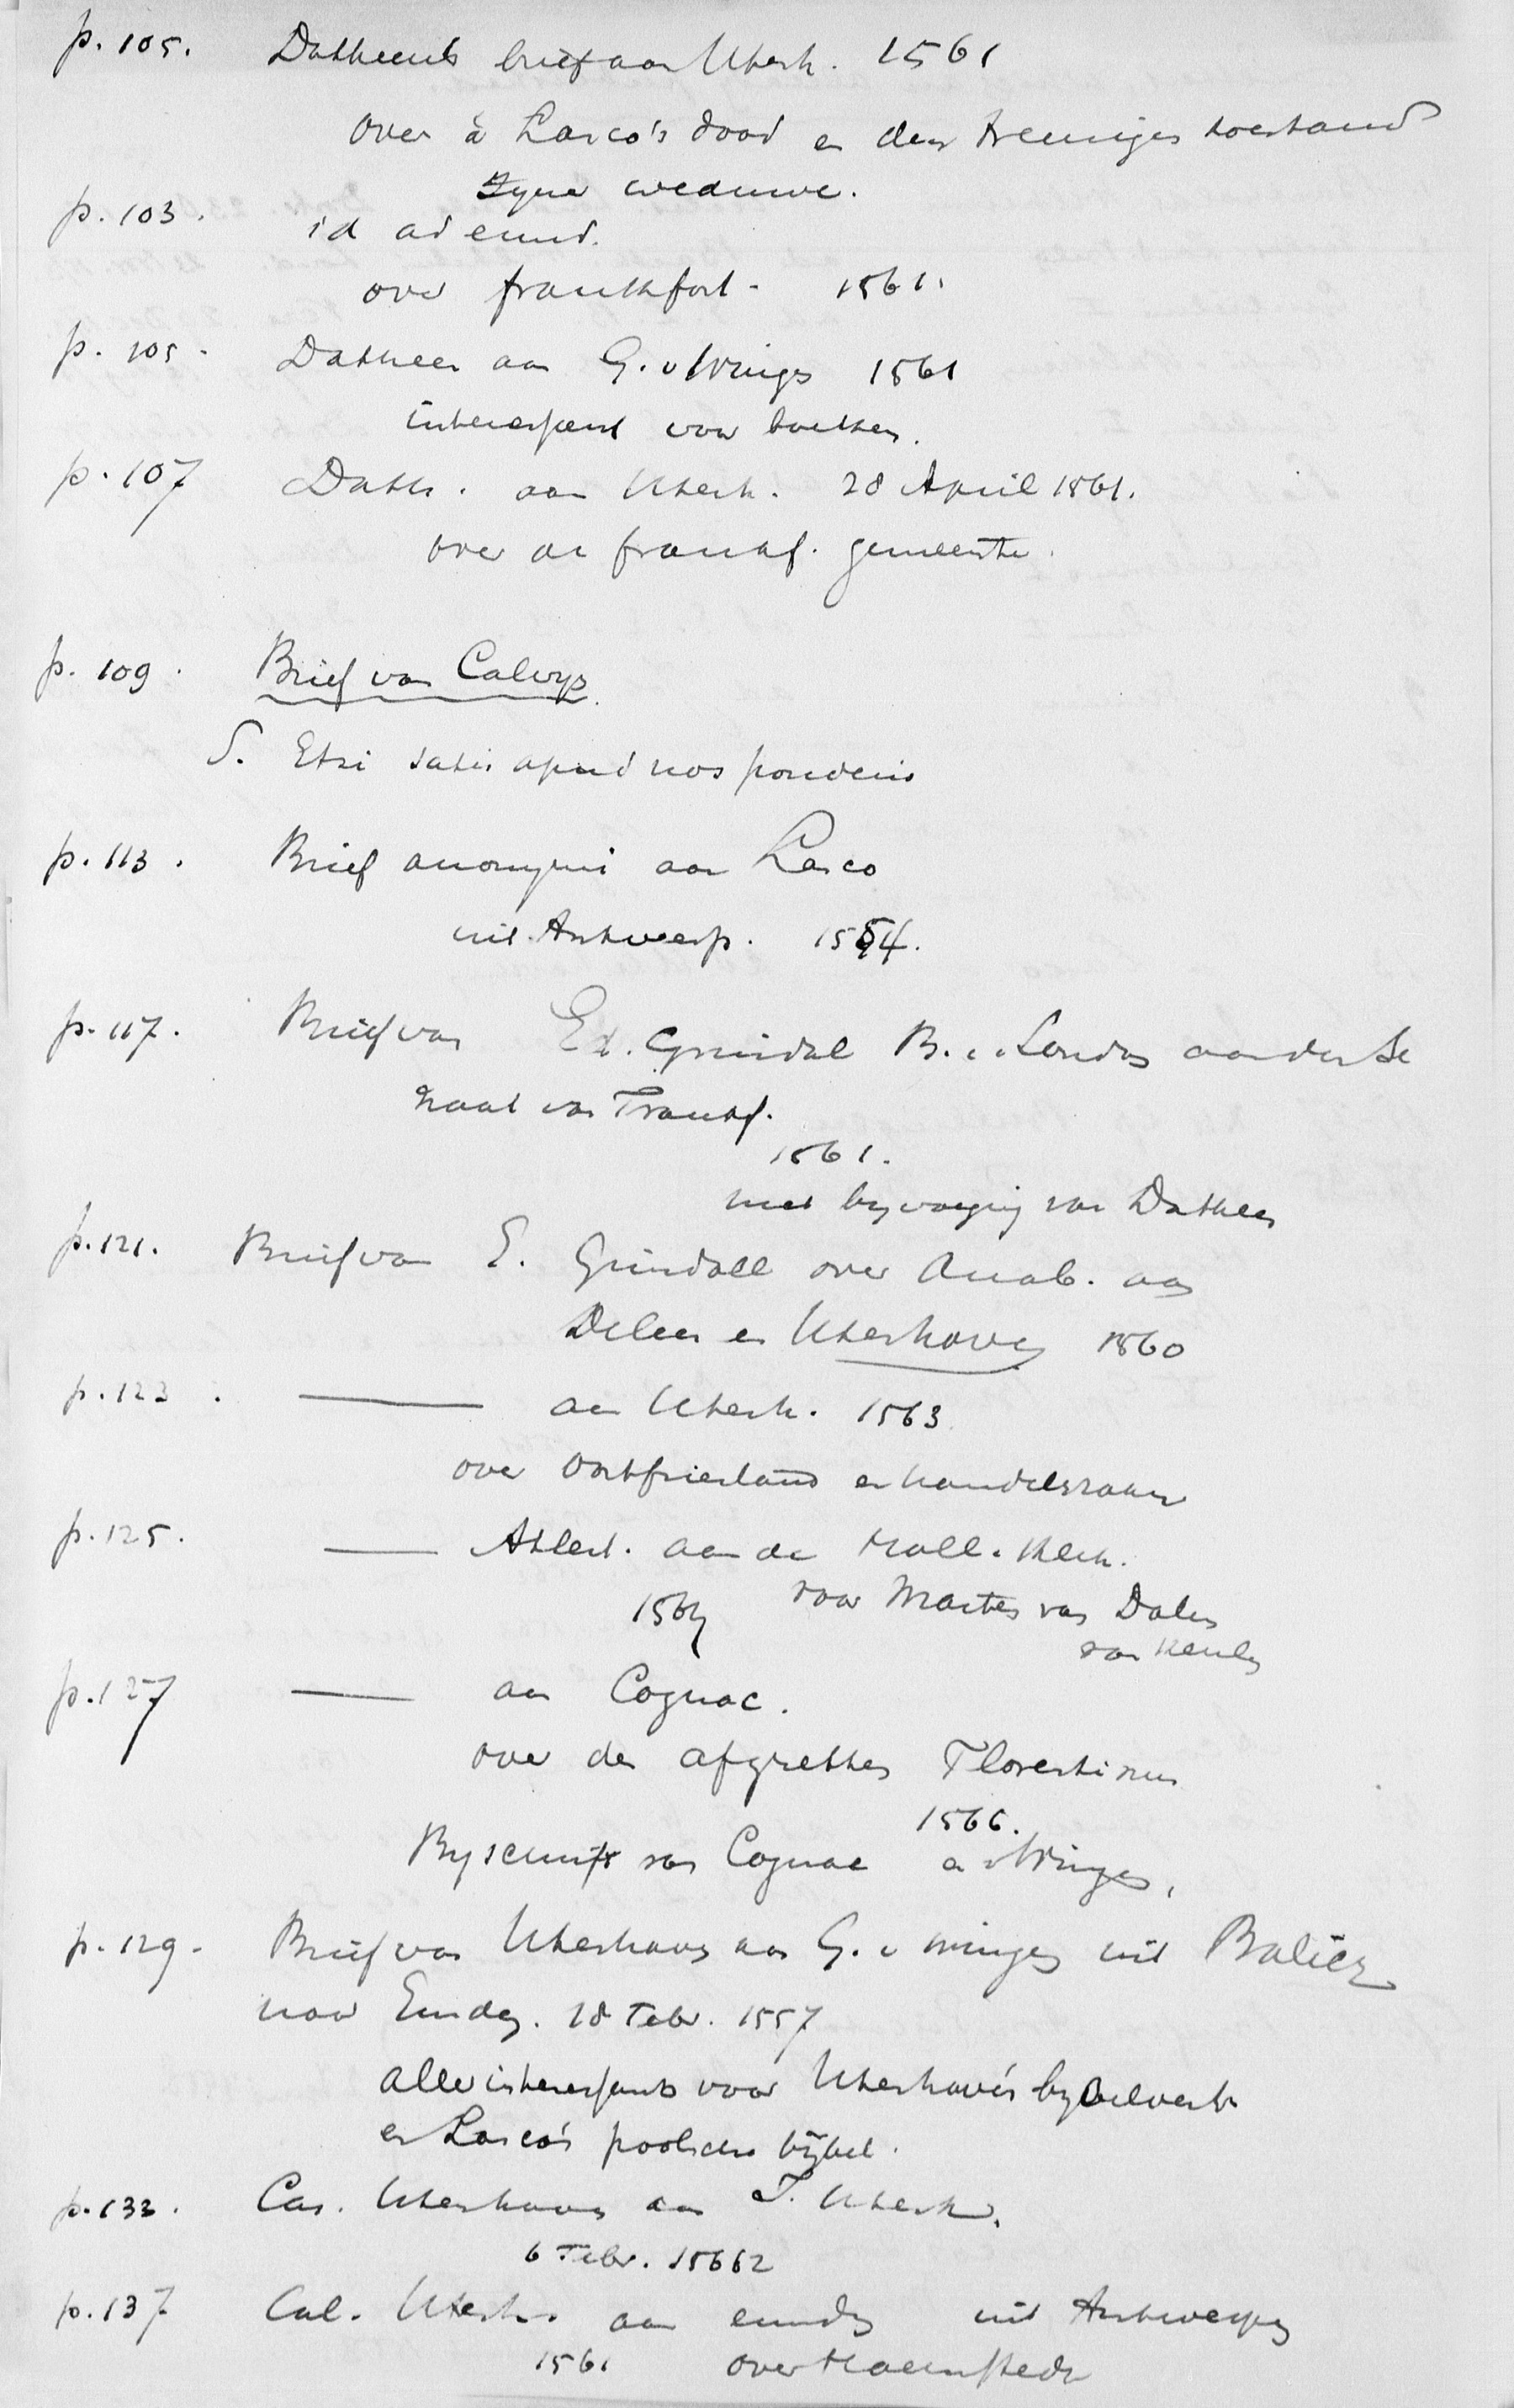 p. 105. Datheens brief aan Utenh. 1561
over à Lasco's dood en den treurigen toestand
zyner weduwe.
p. 103. id ad eund.
over Frankfort. 1561.
p. 105. Datheen aan G. v Wingen 1561
interessant voor boeken.
p. 107 Dath. aan Utenh. 28 April 1561.
over de frankf. gemeente.
p. 109. Brief van Calvyn.
S. Etsi satis apud nos
p. 113. Brief anonymi aan Lasco
uit Antwerp. 1554.
p. 117. Brief van Ed. Grindal B. v. Londen aan den Se
naat van Frankf.
1561.
met byvoeging van Datheen
p. 121. Brief van E. Grindall over Anab. aan
Deleen en Utenhoven 1560
p. 123. — aan Utenh. 1563
over Oostfriesland en handelszaken
p. 125. — Attest. aan de Holl. Kerk.
156 voor Marten van Dalen
van Keulen
p. 127 — aan Cognac.
over den afgezetten Florentinus
1566.
Byschrift van Cognac a v Wingen,
p. 129. Brief van Utenhoven aan G. v Wingen uit Balicz
naar Emden. 18 Febr. 1557
allerinteressants voor Utenhove's bybelvert.
en Lasco's poolschen bijbel.
p. 133. Car. Utenhoven aan J. Utenh.
6 Febr. 15662
p. 137 Cal. Utenh. aan eunden uit Antwerpen
1561 over Haemstede